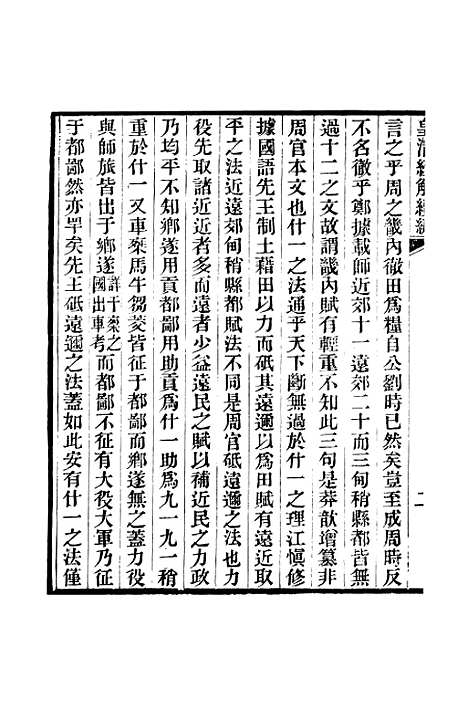 皇清經解續編
二
言之乎周之畿內徹田爲糧自公劉時已然矣豈至成周時反
不名徹乎鄭據載師近郊十一遠郊二十而三甸稍縣都皆無
過十二之文故謂畿內賦有輕重不知此三句是莽歆增纂非
周官本文也什一之法通乎天下斷無過於什一之理江愼修
據國語先王制土藉田以力而砥其遠邇以爲田賦有遠近取
平之法近遠郊甸稍縣都賦法不同是周官砥遠邇之法也力
役先取諸近近者多而遠者少益遠民之賦以補近民之力政
乃均平不知鄉遂用貢都鄙用助貢爲什一助爲九一九一稍
重於什一又車乘馬牛芻茭皆征于都鄙而鄉遂無之蓋力役
與師旅皆出于鄉遂詳千乘之國出車考而都鄙不征有大役大軍乃征
于都鄙然亦罕矣先王砥遠邇之法蓋如此安有什一之法僅